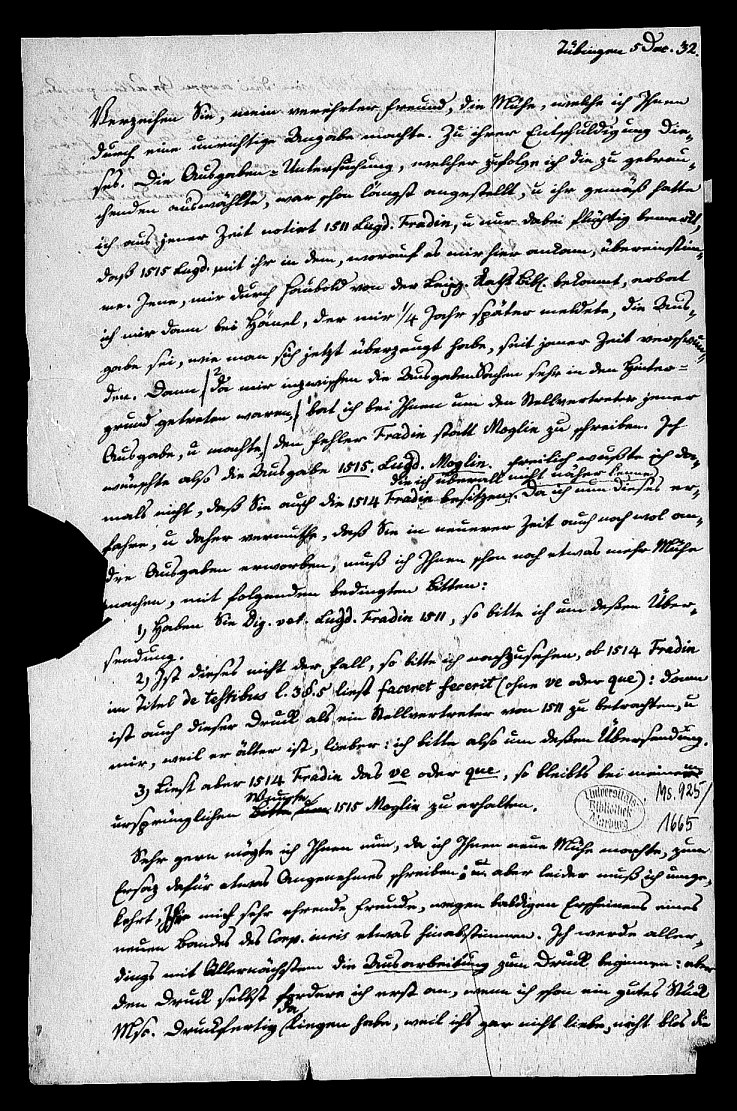 Tübingen 5 Dec. 32.
Verzeihen Sie, mein verehrter Freund, die Mühe, welche ich Ihnen
durch eine unrichtige Angabe machte. Zu ihrer Entschuldigung die-
ses. Die Ausgaben-Untersuchung, welcher zufolge ich die zu gebrau-
chenden auswählte, war schon längst angestellt, u ihr gemäß hatte
ich aus jener Zeit notirt 1511 Lugd. Fradin, u nur dabei flüchtig bemerkt,
daß 1515 Lugd. mit ihr in dem, worauf es mir hier ankam, übereinstim-
me. Jene, mir durch Haubold von der Leipz. Raths Bibl. bekannt, erbat
ich mir dann bei Hänel, der mir 1/4 Jahr später meldete, die Aus-
gabe sei, wie man sich jetzt überzeugt habe, seit jener Zeit verschwun-
den. Dann /2 da mir inzwischen die Ausgabensachen sehr in den Hinter-
grund getreten waren,/ 1 bat ich bei Ihnen um den Stellvertreter jener
Ausgabe, u machte/ den Fehler Fradin statt Moylin zu schreiben. Ich
wünschte also die Ausgabe 1515. Lugd. Moylin. Freilich wußte ich da-
die ich überall nicht näher kenne
mals nicht, daß Sie auch die 1514 Fradin besitzen. Da ich nun dieses er-
fahre, u daher vermuthe, daß Sie in neuerer Zeit auch noch wol an-
dre Ausgaben erworben, muß ich Ihnen schon noch etwas mehr Mühe
machen, mit folgenden bedingten Bitten:
1) Haben Sie Dig. vet. Lugd. Fradin 1511, so bitte ich um deßen Über-
sendung.
2) Ist dieses nicht der Fall, so bitte ich nachzusehen, ob 1514 Fradin
im Titel de testibus l. 3 §. 5 liest faceret fecerit (ohne ve oder que): dann
ist auch dieser Druck als ein Stellvertreter von 1511 zu betrachten, u
mir, weil er älter ist, lieber: ich bitte also um deßen Übersendung.
3) Liest aber 1514 Fradin das ve oder que, so bleibts bei meinem
ursprünglichen Wunsche 1515 Moylin zu erhalten.
Universitäts-
Bibliothek
Marburg
Ms. 925/
1665
Sehr gern mögte ich Ihnen nun, da ich Ihnen neue Mühe machte, zum
Ersaz dafür etwas Angenehmes schreiben; aber leider muß ich umge-
kehrt, Ihre mich sehr ehrende Freude, wegen baldigen Erscheinens eines
neuen Bandes des Corp. iuris etwas hinabstimmen. Ich werde aller-
dings mit Allernächstem die Ausarbeitung zum Druck beginnen: aber
den Druck selbst fordere ich erst an, wenn ich schon ein gutes Stück
Msc. druckfertig da liegen habe, weil ichs gar nicht liebe, nicht blos die